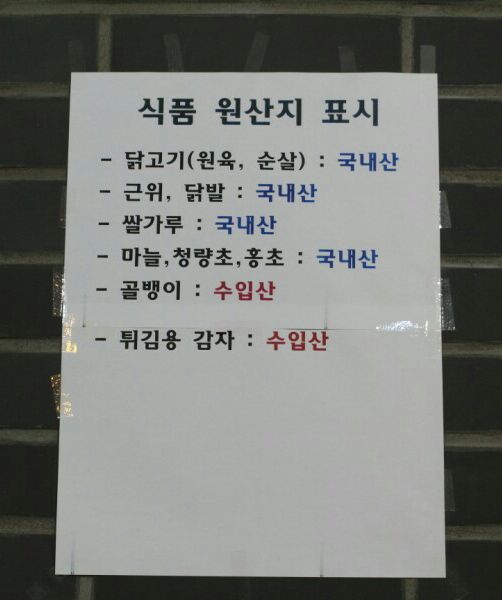 식품 원산지 표시
- 닭고기(원육, 순살) : 국내산
- 근위, 닭발 : 국내산
- 쌀가루 : 국내산
- 마늘,청량초,홍초 : 국내산
- 골뱅이 : 수입산
- 튀김용 감자 : 수입산